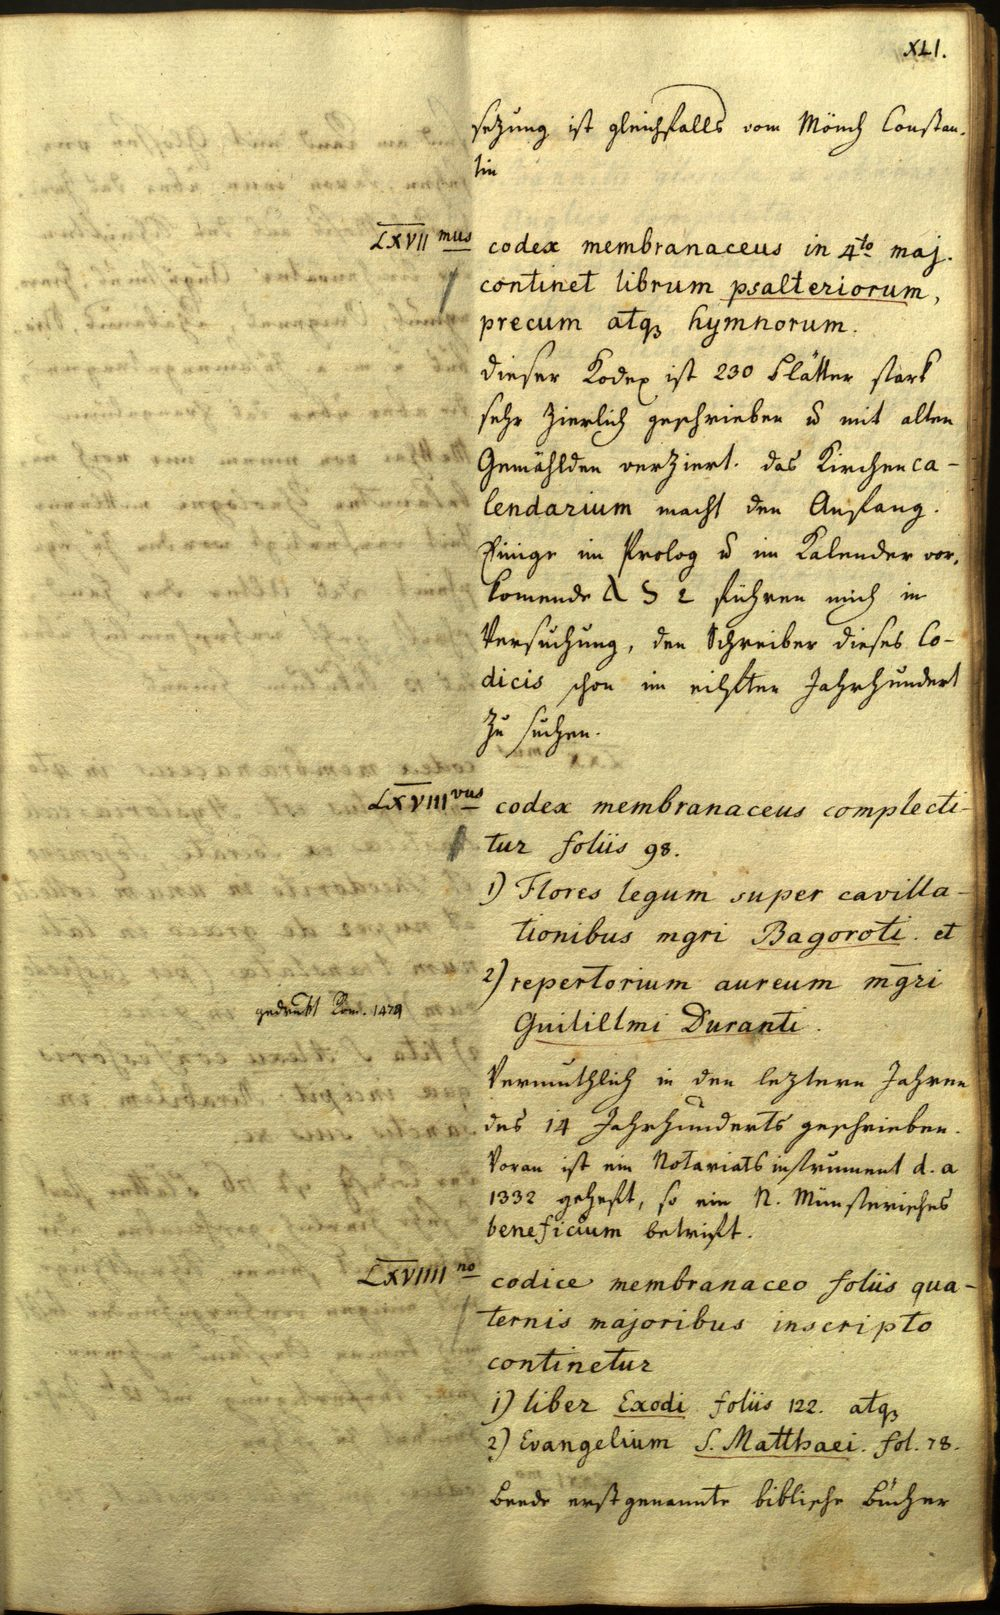 XLI.
setzung ist gleichfalls vom Mönch Constan-
tin
LXVII mus codex membranaceus in 4to maj.
continet librum psalteriorum,
precum atq3 hymnorum.
Dieser Kodex ist 230 Blätter stark
sehr zierlich geschrieben u mit alten
Gemählden verziert. das Kirchenca-
lendarium macht den Anfang.
Einige im Prolog u im Kalender vor-
komende führen mich in
Versuchung, den Schreiber dieses Co-
dicis schon im eilften Jahrhundert
zu suchen.
LXVIII vus codex membranaceus complecti-
tur foliis 98.
1) Flores legum super cavilla-
tionibus mgri Bagoroti. et
2) repertorium aureum mgri
gedrukt Rom. 1474
Guilillmi Duranti.
Vermuthlich in den leztern Jahren
des 14 Jahrhunderts geschrieben.
Voran ist ein Notariatsinstrument d. a
1332 geheft, so ein N. Münsterisches
beneficium betrift.
LXVIIII no codice membranaceo foliis qua-
ternis majoribus inscripto
continetur
1) liber Exodi foliis 122. atq3
2) Evangelium S. Matthaei. fol. 78.
Beede erstgenannte biblische Bücher